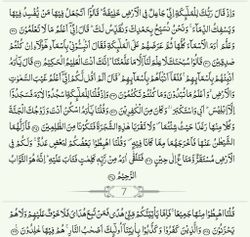 وَإِذْ قَالَ رَبُّكَ لِلْمَلَٰٓئِكَةِ إِنِّي جَاعِلٌ فِي الْأَرْضِ خَلِيفَةً ۖ قَالُوٓا۟ أَتَجْعَلُ فِيهَا مَن يُفْسِدُ فِيهَا
وَيَسْفِكُ الدِّمَآءَ وَنَحْنُ نُسَبِّحُ بِحَمْدِكَ وَنُقَدِّسُ لَكَ ۖ قَالَ إِنِّيٓ أَعْلَمُ مَا لَا تَعْلَمُونَ ٣٠
وَعَلَّمَ ءَادَمَ الْأَسْمَآءَ كُلَّهَا ثُمَّ عَرَضَهُمْ عَلَى الْمَلَٰٓئِكَةِ فَقَالَ أَنۢبِـُٔونِي بِأَسْمَآءِ هَٰٓؤُلَآءِ إِن كُنتُمْ
صَٰدِقِينَ ٣١ قَالُوا۟ سُبْحَٰنَكَ لَا عِلْمَ لَنَآ إِلَّا مَا عَلَّمْتَنَآ ۖ إِنَّكَ أَنتَ الْعَلِيمُ الْحَكِيمُ ٣٢ قَالَ يَٰٓـَٔادَمُ
أَنۢبِئْهُم بِأَسْمَآئِهِمْ ۖ فَلَمَّآ أَنۢبَأَهُم بِأَسْمَآئِهِمْ قَالَ أَلَمْ أَقُل لَّكُمْ إِنِّيٓ أَعْلَمُ غَيْبَ السَّمَٰوَٰتِ
وَالْأَرْضِ وَأَعْلَمُ مَا تُبْدُونَ وَمَا كُنتُمْ تَكْتُمُونَ ٣٣ وَإِذْ قُلْنَا لِلْمَلَٰٓئِكَةِ اسْجُدُوا۟ لِـَٔادَمَ فَسَجَدُوٓا۟
إِلَّآ إِبْلِيسَ أَبَىٰ وَاسْتَكْبَرَ وَكَانَ مِنَ الْكَٰفِرِينَ ٣٤ وَقُلْنَا يَٰٓـَٔادَمُ اسْكُنْ أَنتَ وَزَوْجُكَ الْجَنَّةَ
وَكُلَا مِنْهَا رَغَدًا حَيْثُ شِئْتُمَا وَلَا تَقْرَبَا هَٰذِهِ الشَّجَرَةَ فَتَكُونَا مِنَ الظَّٰلِمِينَ ٣٥ فَأَزَلَّهُمَا
الشَّيْطَٰنُ عَنْهَا فَأَخْرَجَهُمَا مِمَّا كَانَا فِيهِ ۖ وَقُلْنَا اهْبِطُوا۟ بَعْضُكُمْ لِبَعْضٍ عَدُوٌّ ۖ وَلَكُمْ فِي
الْأَرْضِ مُسْتَقَرٌّ وَمَتَٰعٌ إِلَىٰ حِينٍ ٣٦ فَتَلَقَّىٰٓ ءَادَمُ مِن رَّبِّهِ كَلِمَٰتٍ فَتَابَ عَلَيْهِ ۚ إِنَّهُ هُوَ التَّوَّابُ
الرَّحِيمُ ٣٧
7
قُلْنَا اهْبِطُوا۟ مِنْهَا جَمِيعًا ۖ فَإِمَّا يَأْتِيَنَّكُم مِّنِّي هُدًى فَمَن تَبِعَ هُدَايَ فَلَا خَوْفٌ عَلَيْهِمْ وَلَا هُمْ
يَحْزَنُونَ ٣٨ وَالَّذِينَ كَفَرُوا۟ وَكَذَّبُوا۟ بِـَٔايَٰتِنَآ أُو۟لَٰٓئِكَ أَصْحَٰبُ النَّارِ ۖ هُمْ فِيهَا خَٰلِدُونَ ٣٩